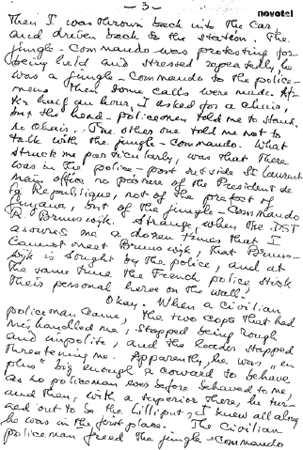 - 3 -
novotel
Then I was thrown back into the car
and driven back to the station. The
jungle-commando was protesting for
being held and stressed repeatedly, he
was a jungle-commando to the police-
mens. Then some calls were made. Af-
ter half an hour, I asked for a chair,
but the head-policemen told me to stand.
No chair. The other one told me not to
talk with the jungle-commando. What
struck me particularly, was that there
was in the police-post outside St Laurent
main office no picture of the President de
la République, not of the prefect of
Guyana, but of the jungle-commando
R. Brunswijk. Strange, when the DST
assured me a dozen times that I
cannot meet Brunswijk, that Bruns-
wijk is sought by the police, and at
the same time the French police stick
their personal heroe on the wall.
Okay. When a civilian
policeman came, the two cops that had
mishandled me, stopped being rough
and unpolite, and the leader stopped
threatening me. Apparently, he was "en
plus" big enough a coward to behave
as no policeman ever before behaved to me,
and then, with a superior there, he tur-
ned out to be the lilliput, I knew all along
he was in the first place. The civilian
policeman freed the jungle-commando